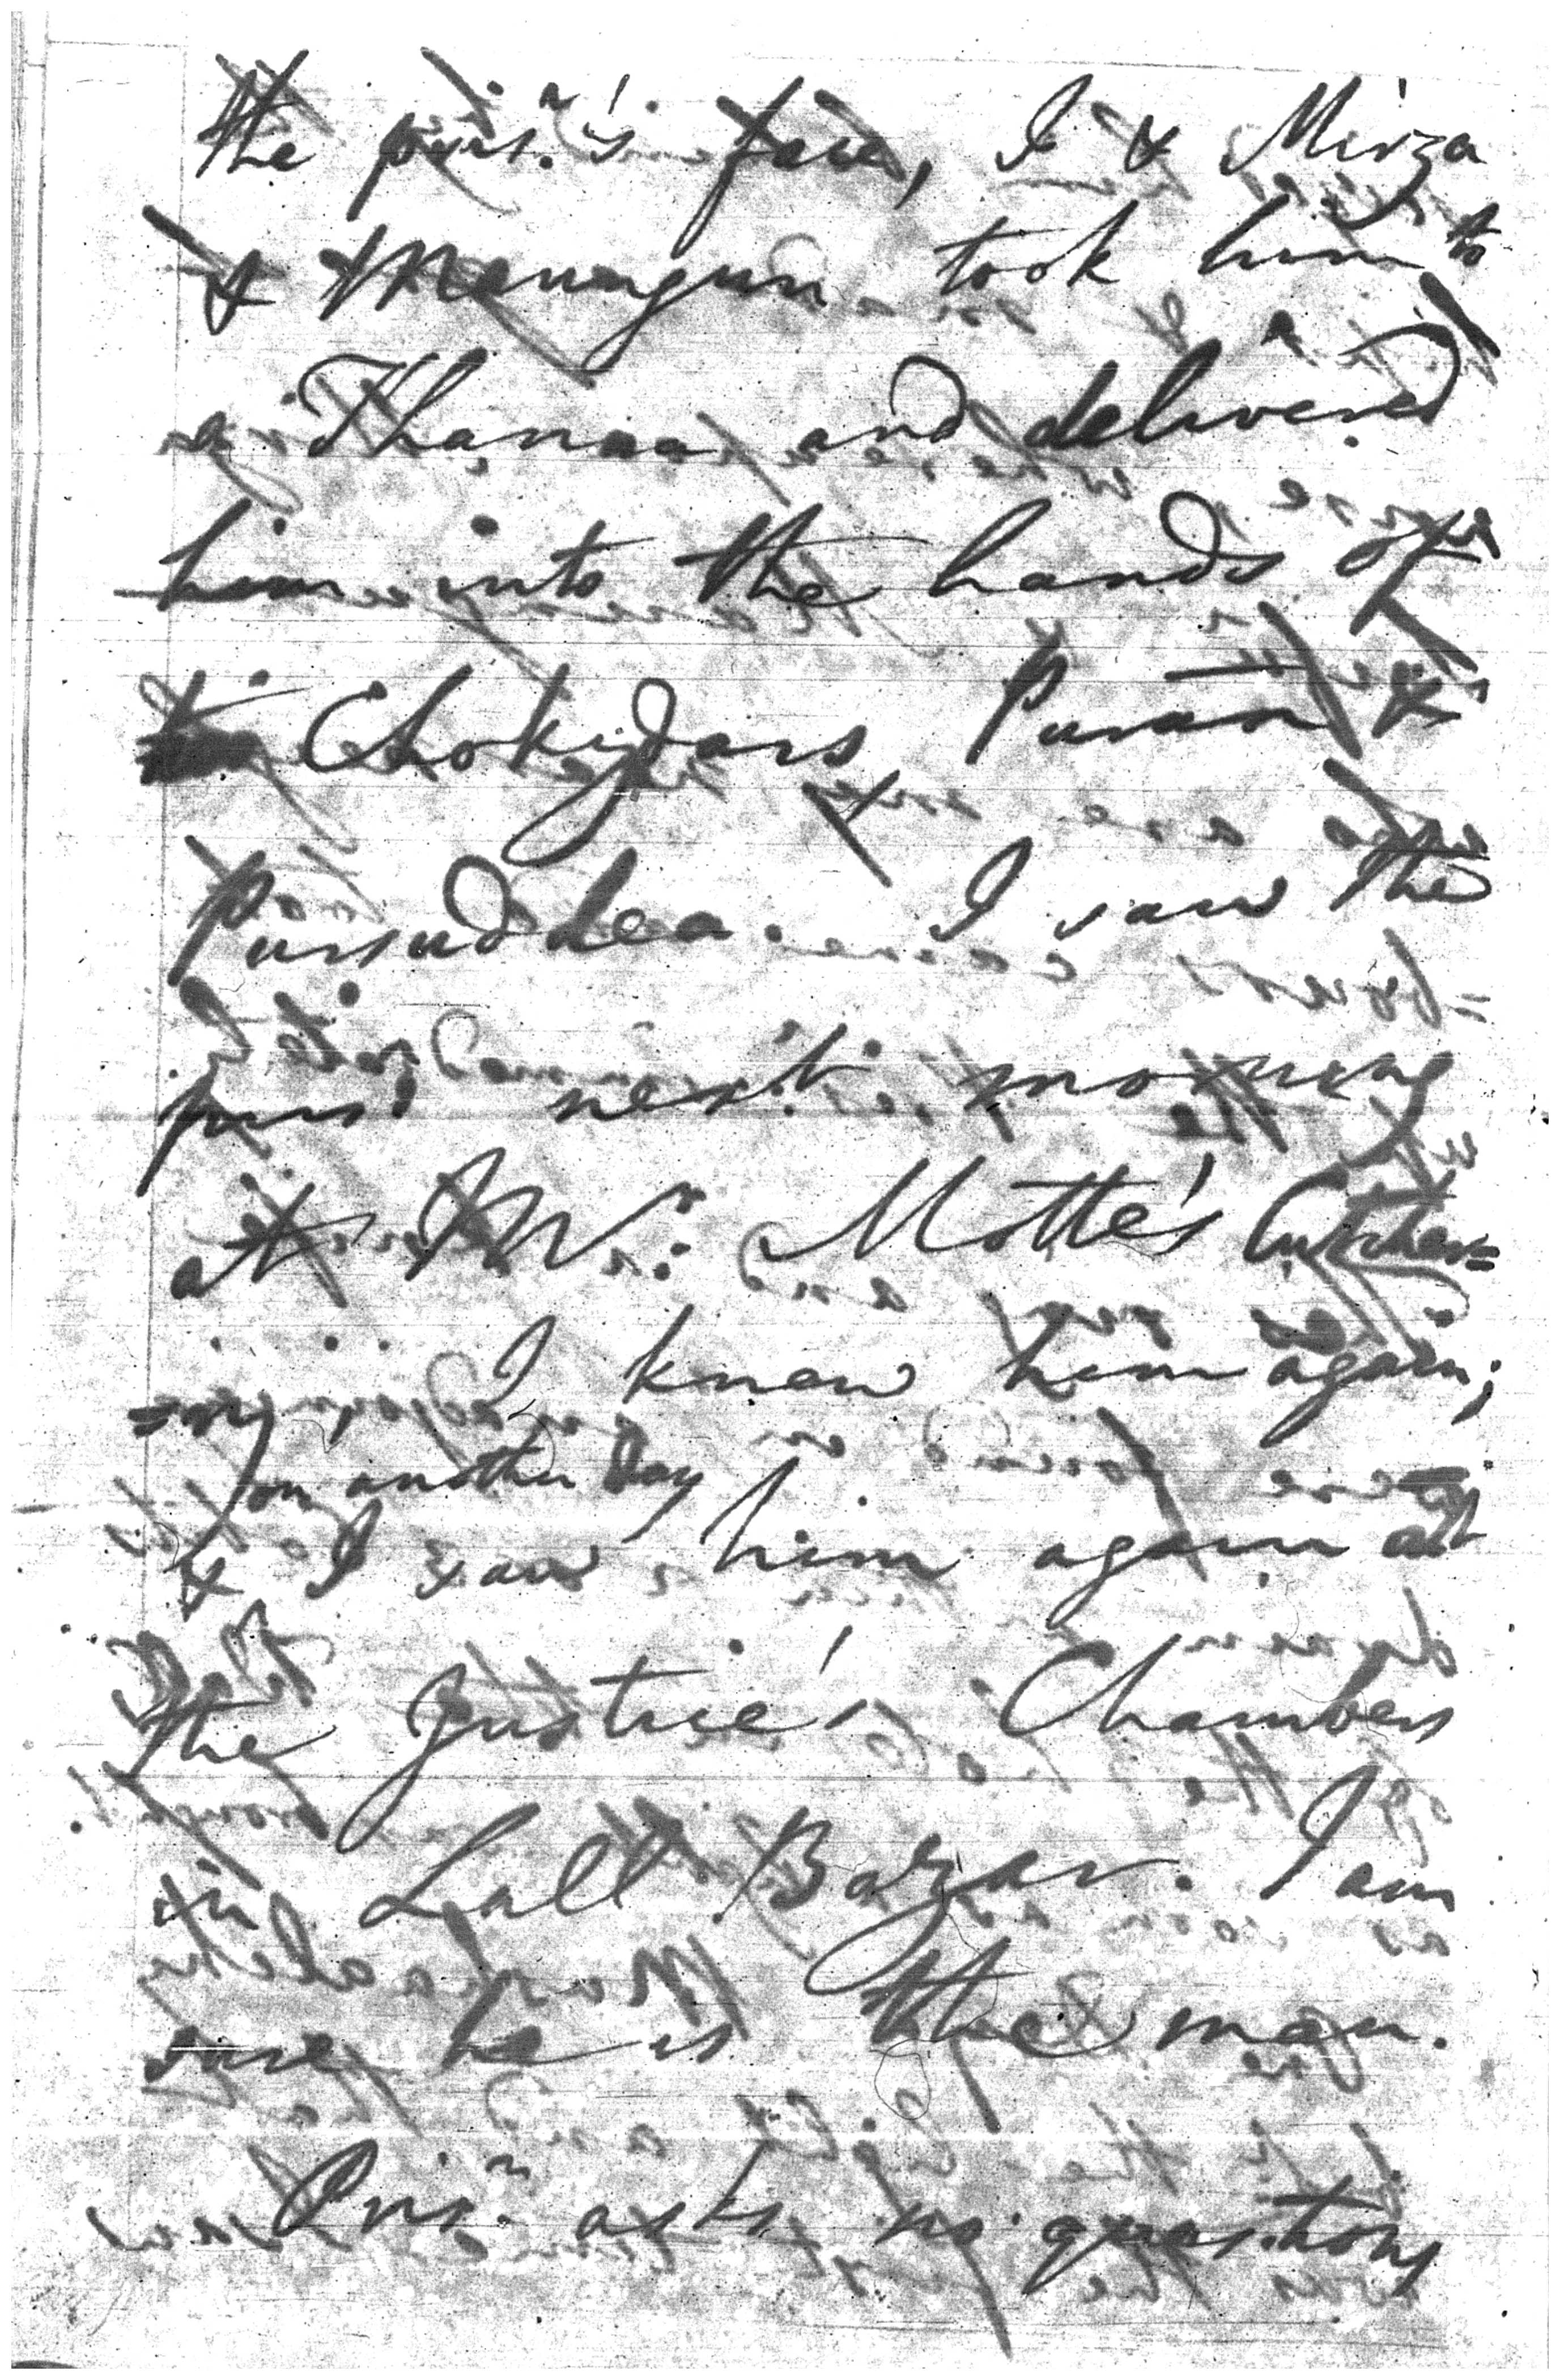 the pris.r's face, I & Mirza
& Mnungun took him to
a Thanaa and delivered
him into the hands of
Chokydars, Puran &
Pursuddea. I saw the
pris.r next morning
at Mr. Motte's Cutcher=
=ry, I knew him again;
on another day
& I saw him again at
the Justice's Chambers
in Lall Bazar. I am
sure he is the man.
Pris.r asks no questions